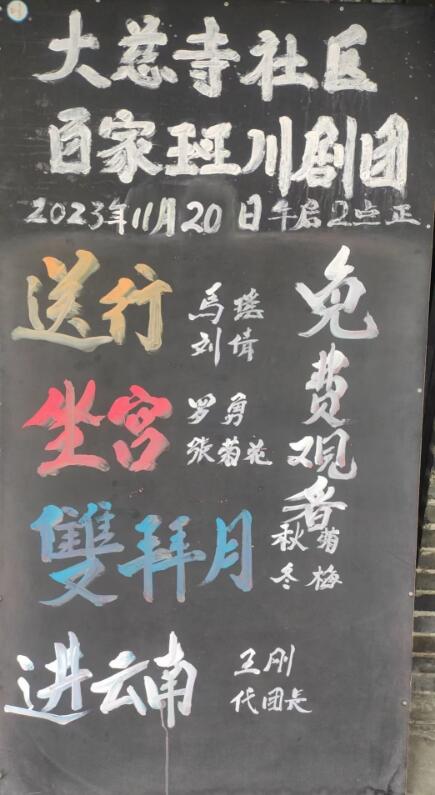 大慈寺社区
百家班川剧团
2023年11月20日午后2点正
免费观看
送行
馬瑶
刘倩
坐宫
罗勇
张菊花
雙拜月
秋菊
冬梅
进云南
王刚
代团长